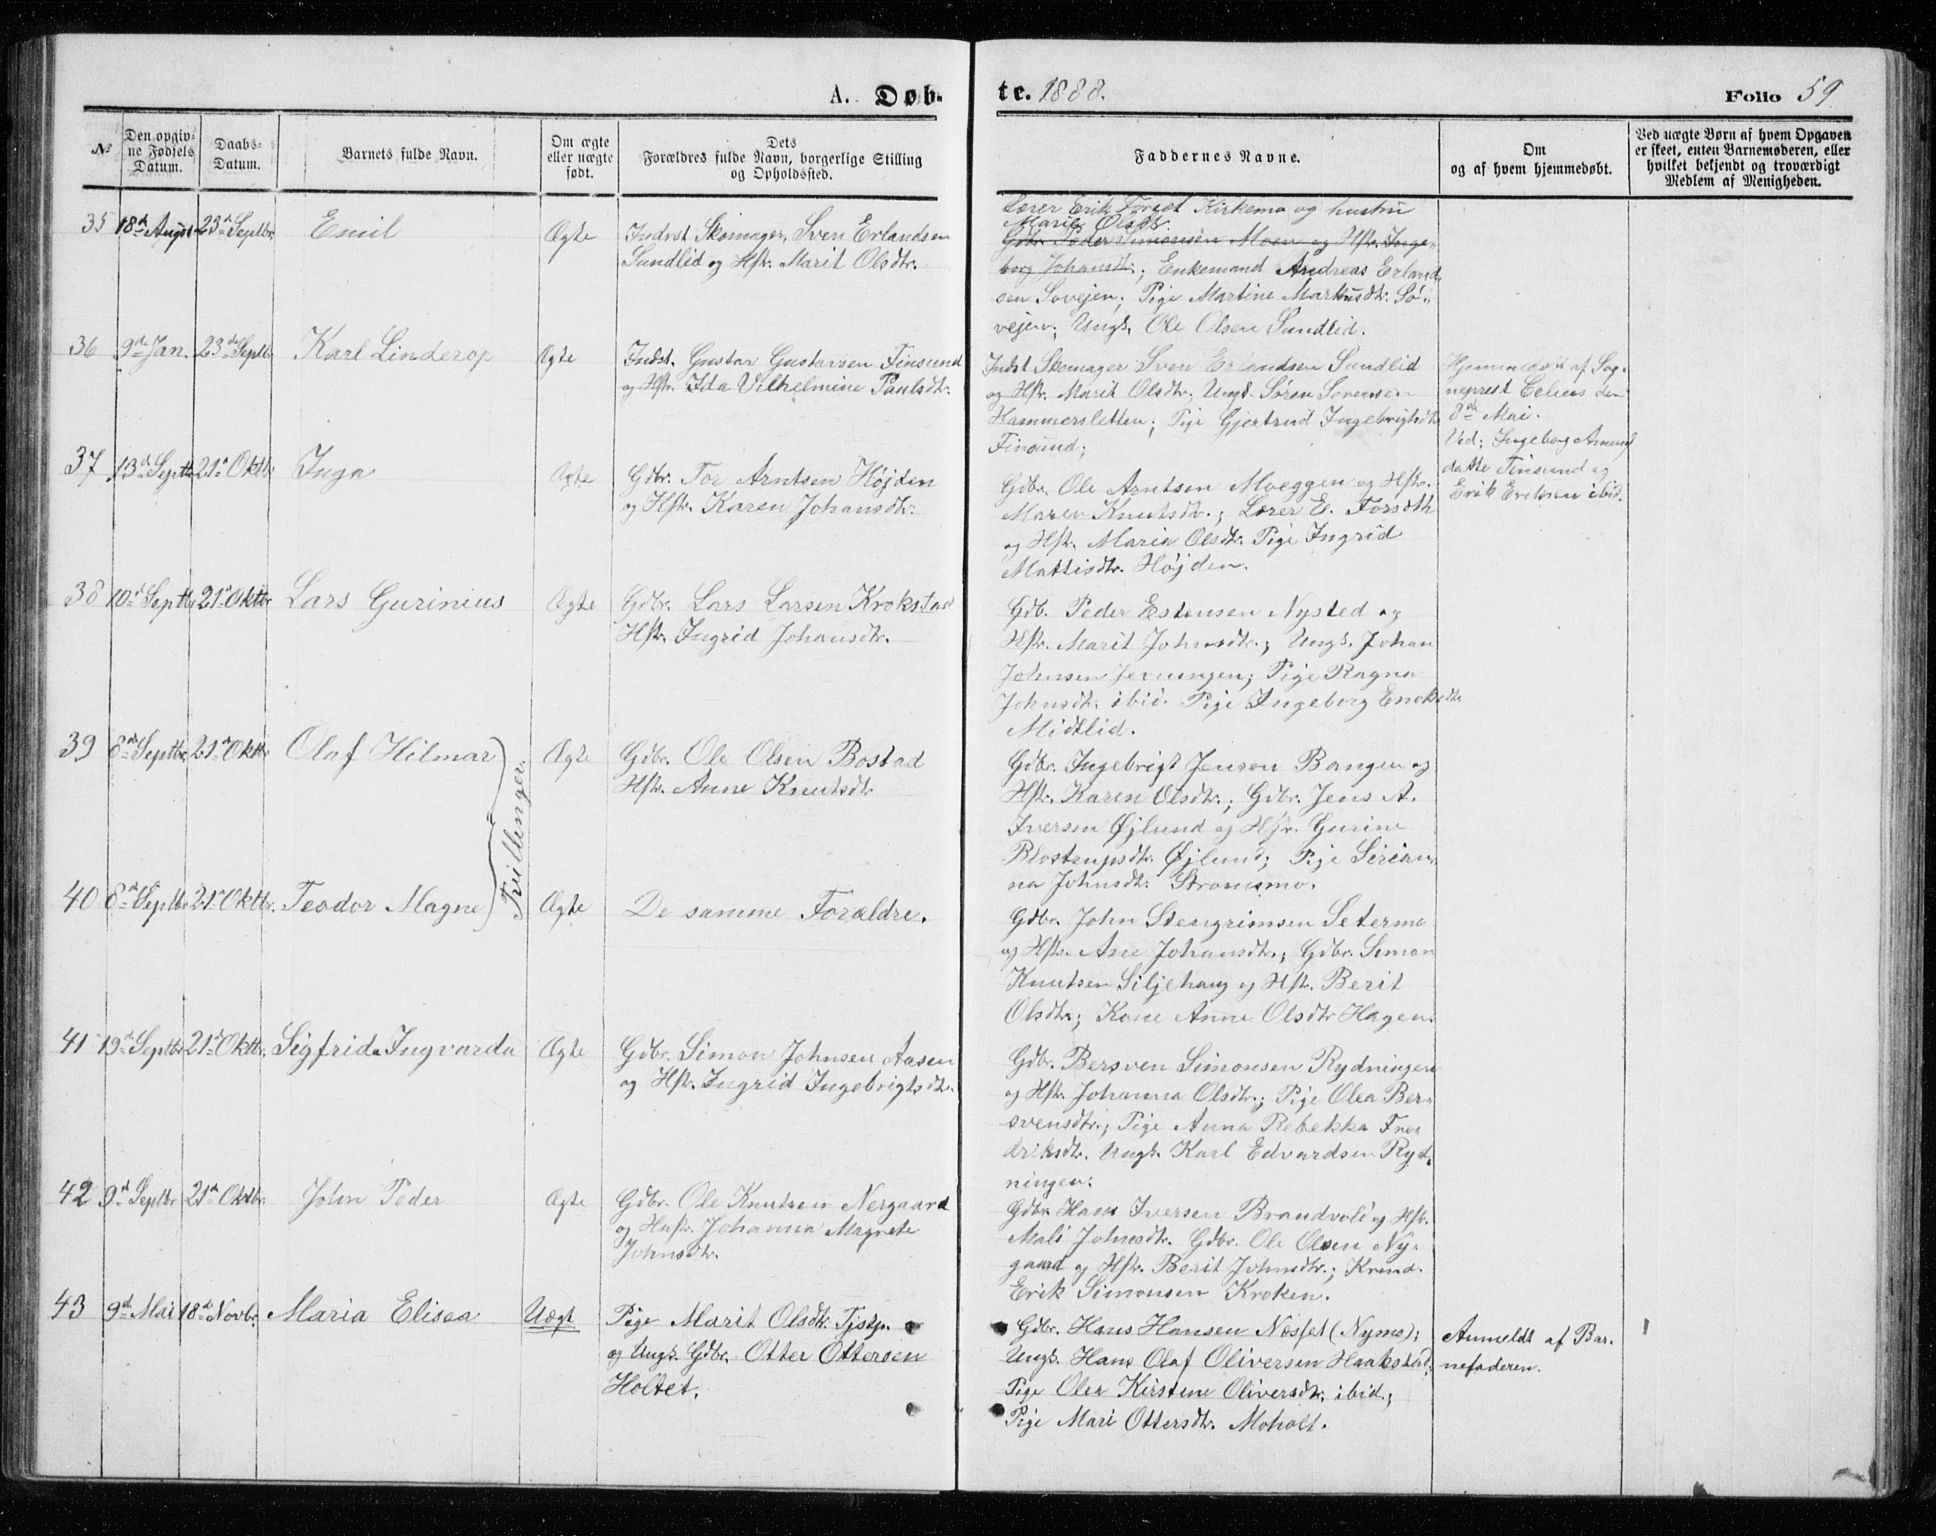 A. Døb-
te. 1888.
Folio 59
№
Den opgiv-
ne Fødsels
Datum.
Daabs-
Datum.
Barnets fulde Navn.
Om ægte
eller uægte
født.
Dets
Forældres fulde Navn, borgerlige Stilling
og Opholdssted.
Faddernes Navne.
Om
og af hvem hjemmedøbt.
Ved uægte Børn af hvem Opgaven
er skeet, enten Barnemoderen, eller
hvilket bekjendt og troværdigt
Medlem af Menigheden.
35 18de Augst 23de Septbr. Emil Ægte
Indrst Skomager, Sven Erlandsen
Sundlid og Hst. Marit Olsdtr.
Lærer Erik Forset Kirkemo og hustru
Marie Olsdt.
Gdbr. Peder Simonsen Moen og Hst. Inge-
borg Johansdt.; Enkemand Andreas Erland-
sen Sovejen; Pige Martine Markusdtr. Sö-
vejen; Ungk. Ole Olsen Sundlid.
36 9de Jan. 23de Septbr. Karl Linderop Ægte
Indst. Gustav Gustavsen Finsund
og Hst. Ida Vilhelmine Paulsdtr.
Indst Skomager Sven Erlandsen Sundlid
og Hst. Marit Olsdtr.; Ungk. Sören Sörensen
Hammersletten; Pige Gjertrud Ingebrigtsdtr
Finsund;
Hjemmedöbt af Sog-
neprest Celius den
8de Mai.
Ved; Ingeborg
datte Finsund og
Erik Eriksen ibid.
37 13de Septbr 21de Oktbr. Inga Ægte
Gdbr. Tor Arntsen Höjden
og Hst. Karen Johansdtr.
Gdbr. Ole Arntsen Moeggen og Hst.
Maren Knutsdtr.; Lærer E. Forseth
og Hst. Maria Olsdtr. Pige Ingrid
Mattisdtr. Höjden.
38 10de Septbr 21de Oktbr Lars Gurinius Ægte
Gdbr. Lars Larsen Krokstad
Hst. Ingrid Johansdtr.
Gdb. Peder Estensen Nysted og
Hst. Marit Johnsdtr.; Ungk. Johan
Johnsen Jevningen; Pige Ragna
Johnsdtr. ibid. Pige Ingeborg Eriksdtr
Midtlid.
39 8de Septbr. 21de Oktbr Olaf Hilmar Ægte
Tvillinger.
Gdbr. Ole Olsen Bostad
Hst. Anne Knutsdtr
Gdbr. Ingebrigt Jenson Bangen og
Hst. Karen Olsdtr.; Gdbr. Jens A.
Iversen Øjlund og Hst. Gurine
Blostrupsdtr. Øjlund; Pige Sirian-
na Johnsdt. Strømsmo.
40 8de Septbr 21de Oktbr. Teodor Magne Ægte
De samme Forældre.
Gdbr. John Stengrimsen Setermo
og Hst. Ane Johansdtr.; Gdbr. Simon
Knutsen Siljehaug og Hst. Berit
Olsdtr.; Kone Anne Olsdtr Hagen.
41 19de Septbr 21de Oktbr. Sigfrida Ingvarda Ægte
Gdbr. Simon Johnsen Aasen
og Hst. Ingrid Ingebrigtsdtr.
Gdbr. Bersven Simonsen Rydningen
og Hst. Johanna Olsdtr.; Pige Olea Ber-
svensdtr.; Pige Anna Rebekka Fre-
driksdtr. Ungk. Karl Edvardsen Ryd-
ningen.
42 9de Septbr 21de Oktbr. John Peder Ægte
Gdbr. Ole Knutsen Nergaard
og Hust. Johanna Magrete
Johnsdtr.
Gdbr Hans Iversen Brandvold og Hst.
Mali Johnsdtr. Gdbr. Ole Olsen Ny-
gaard og Hst. Berit Johnsdtr.;
Erik Simonsen Kroken.
43 9de Mai 18de Novbr. Maria Elisea Uægt
Pige Marit Olsdtr. Tjstp.
og Ungk. Gdbr. Otter Ottersen
Holtet.
Gdbr. Hans Hansen Næsset (Nymo);
Ungk. Hans Olaf Oliversen Haakstad;
Pige Olea Kirstine Oliversdtr. ibid.;
Pige Mari Ottersdtr. Moholt.
Anmeldt af Bar-
nefaderen.